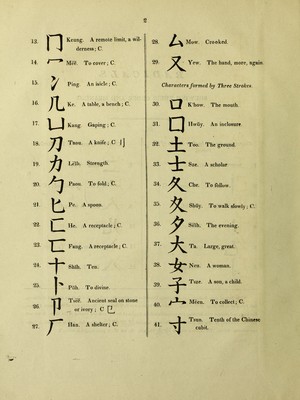 2
13. 冂 Keung. A remote limit, a wil-
derness; C.
14. 冖 Meĭĕ. To cover; C.
15. 冫 Ping. An isicle; C.
16. 几 Ke. A table, a bench; C.
17. 凵 Kang. Gaping; C.
18. 刀 Taou. A knife; C. 刂
19. 力 Leĭh. Strength.
20. 勹 Paou. To fold; C.
21. 匕 Pe. A spoon.
22. 匚 A receptacle; C.
23. 匸 A receptacle; C.
24. 十 Shĭh. Ten.
25. 卜 Pŭh. To divine.
26. 卩 Tseĭĕ. Ancient seal on stone
or ivory; C 㔾
27. 厂 Han. A shelter; C.
28. 厶 Mow. Crooked.
29. 又 Yew. The hand, more, again.
Characters formed by Three Strokes.
30. 口 K'how. The mouth.
31. 囗 An inclosure.
32. 土 Too. The ground
33. 士 Sze. A scholar
34. 夂 Che. To follow.
35. 夊 Shŭy. To walk slowly; C.
36. 夕 Seĭh. The evening.
37. 大 Ta. Large, great.
38. 女 Neu. A woman.
39. 子 Tsze. A son, a child.
40. 宀 Mëen. To collect; C.
41. 寸 Tsun. Tenth of the Chinese
cubit.